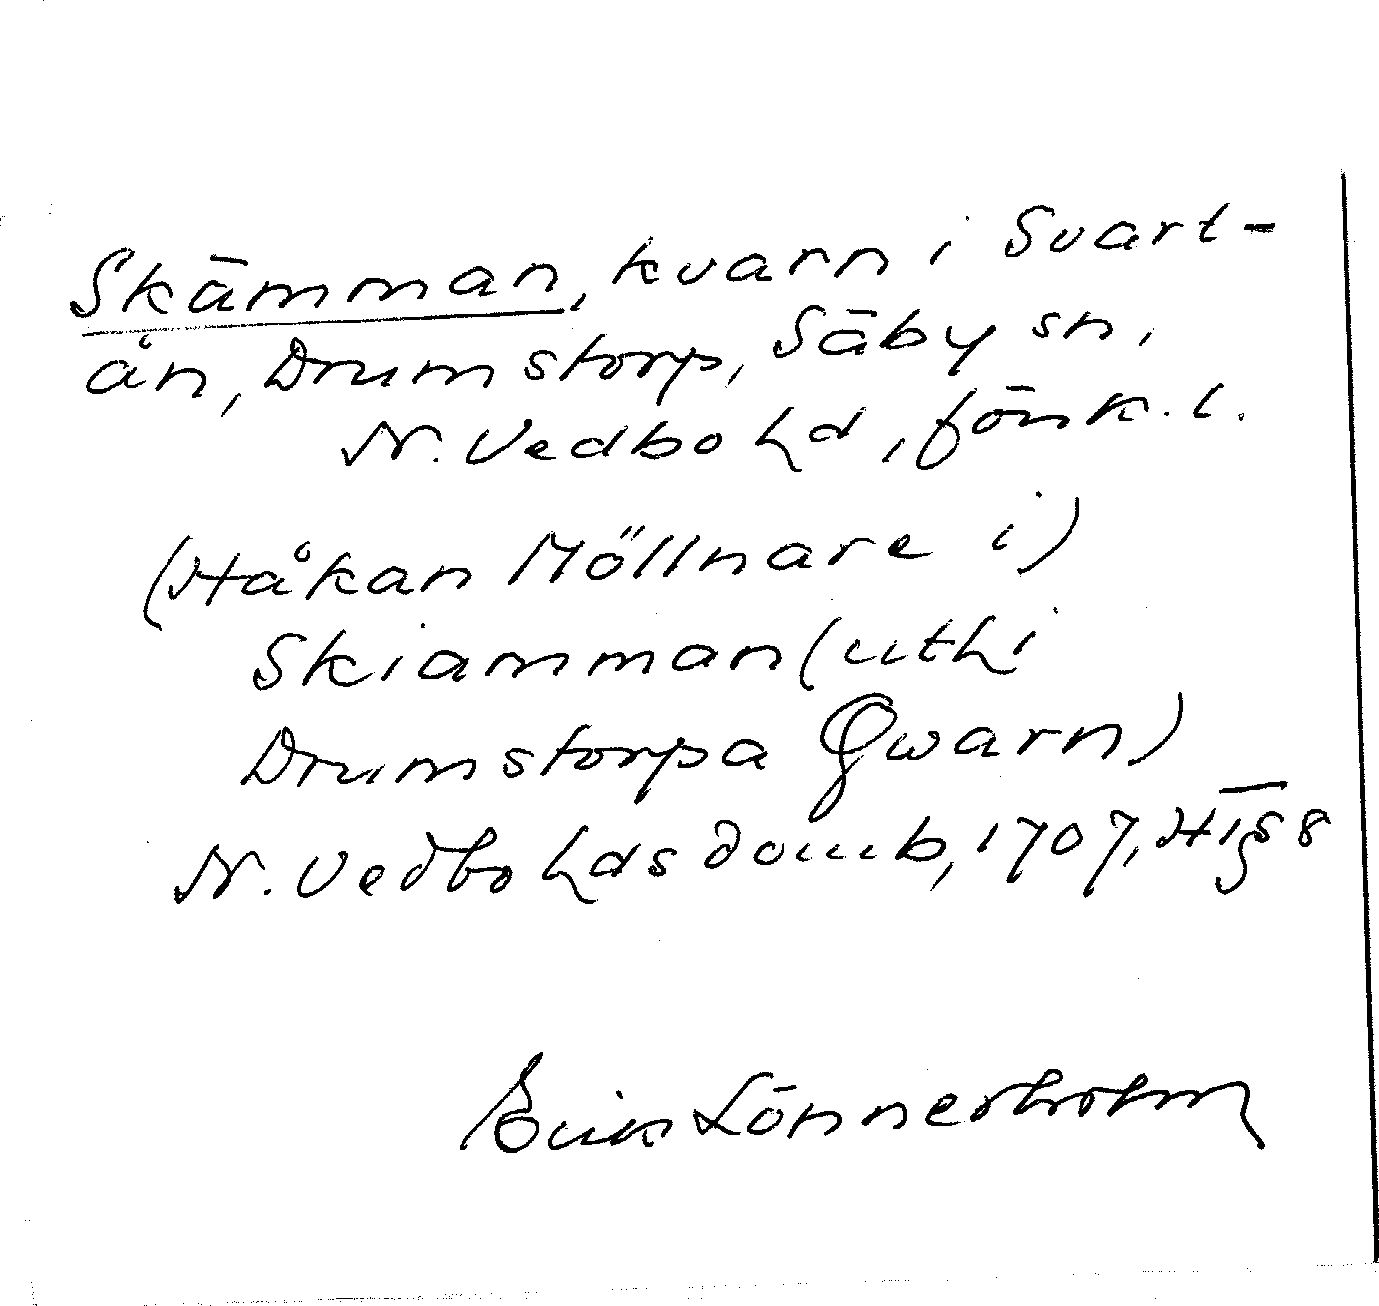 Skämman, kvarn i Svart-
ån, Drumstorp, Säby sn,
N. Vedbo hd, Jönk. l.
(Håkan Möllnare i)
Skiamman (uthi
Drumstorpa Qwarn)
N. Vedbo hds domb, 1707, HT § 8
Erik Lönnerholm